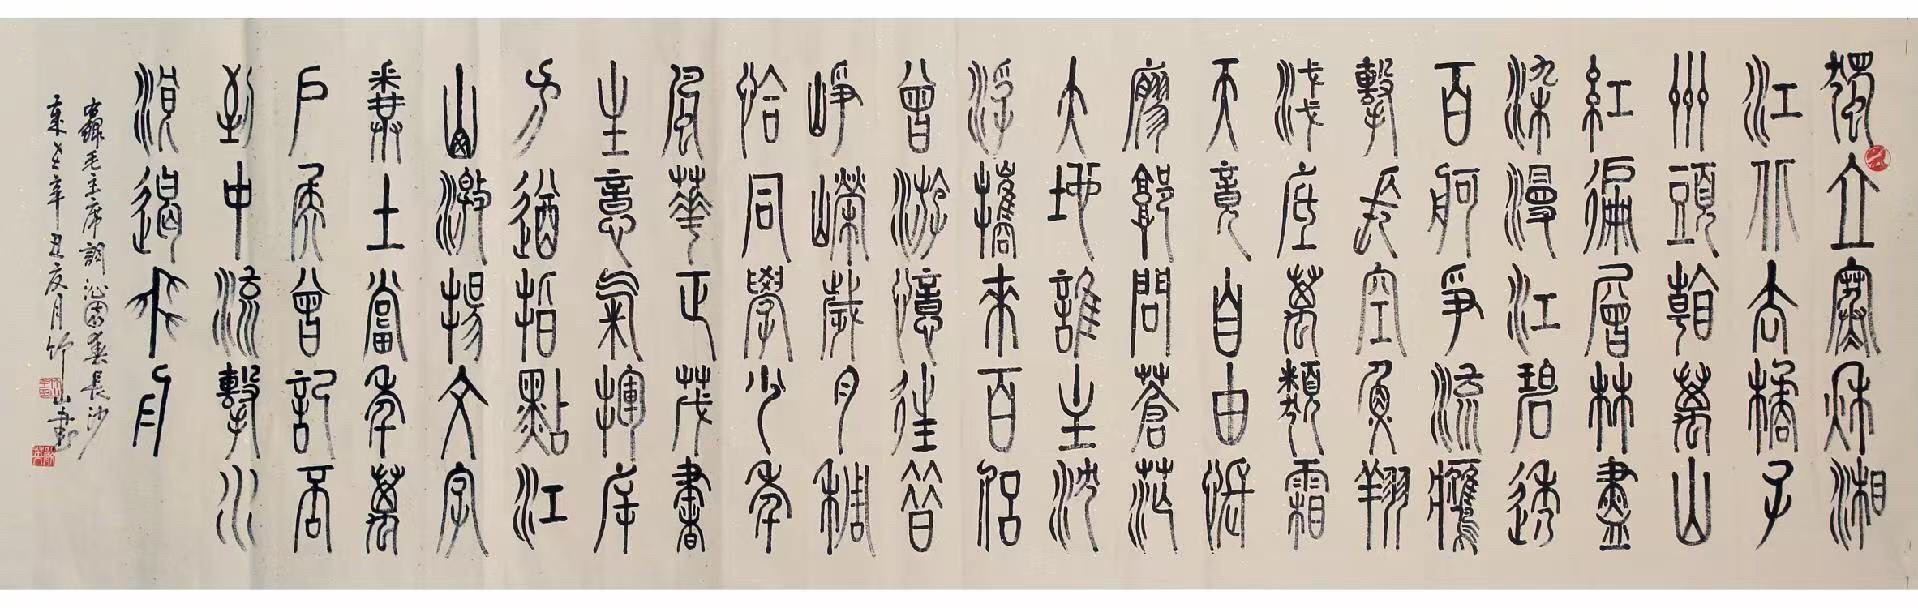 獨立寒秋湘
江北去橘子
州頭看萬山
紅徧層林盡
染漫江碧透
百舸爭流鷹
擊長空魚翔
淺底萬類霜
天競自由悵
廖郭問蒼茫
大地誰主沈
浮攜來百侶
曾游憶往昔
崢嶸歲月稠
恰同學少年
風華正茂書
生意氣揮斥
方遒指點江
山激揚文字
糞土當年萬
戶侯曾記否
到中流擊水
浪遏飛舟
毛主席詞沁園春長沙
辛丑夏月竹山書